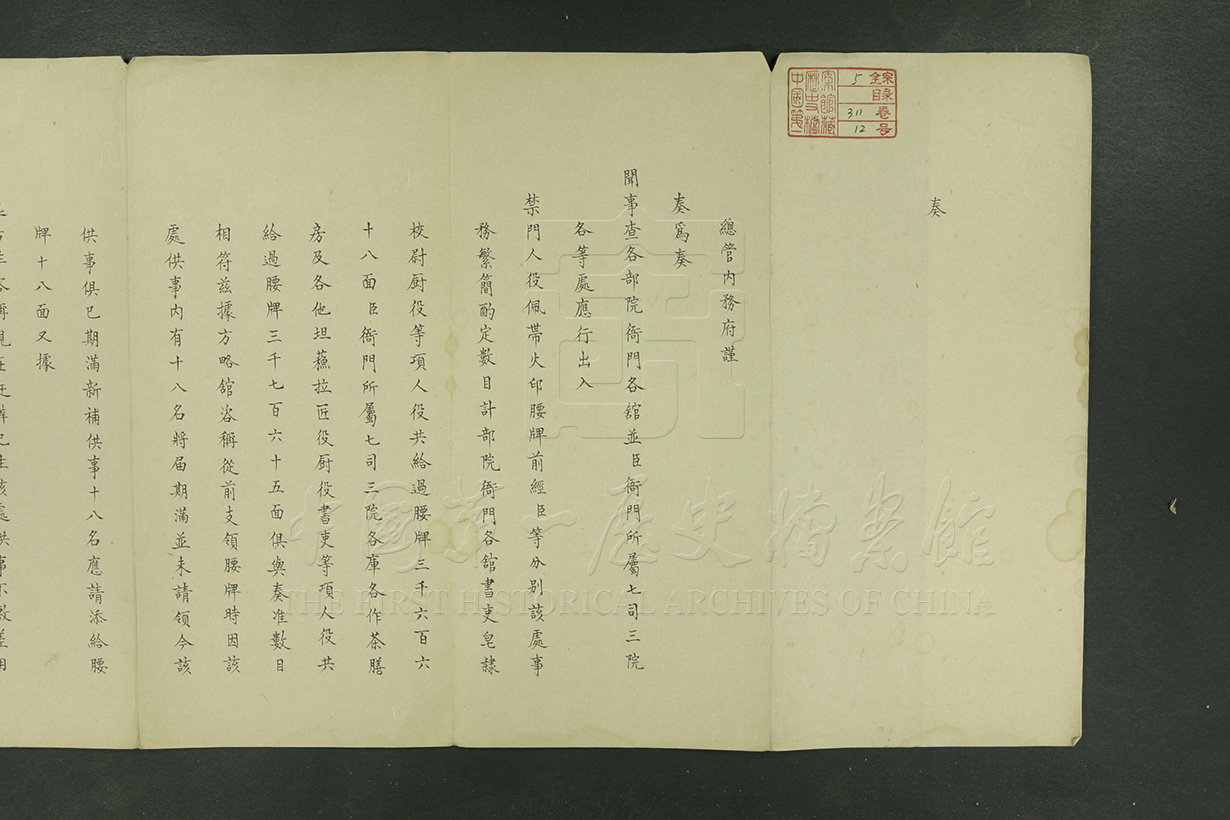 奏
總管內務府謹
奏爲奏
聞事查各部院衙門各舘並臣衙門所屬七司三院
各等處應行出入
禁門人役佩帶火印腰牌前經臣等分別該處事
務繁簡酌定數目計部院衙門各舘書吏皂隸
校尉厨役等項人役共給過腰牌三千六百六
十八面臣衙門所屬七司三院各庫各作茶膳
房及各他坦蘓拉匠役厨役書吏等項人役共
給過腰牌三千七百六十五面俱與奏准數目
相符兹據方略舘咨稱從前支領腰牌時因該
處供事內有十八名將届期滿並未請領今該
供事俱已期滿新補供事十八名應請添給腰
牌十八面又據
處供事不敷差用
全宗 5
目录
卷 311
号 12
中國第一
歷史檔
案館藏
中國第一歷史檔案館
THE FIRST HISTORICAL ARCHIVES OF CHINA